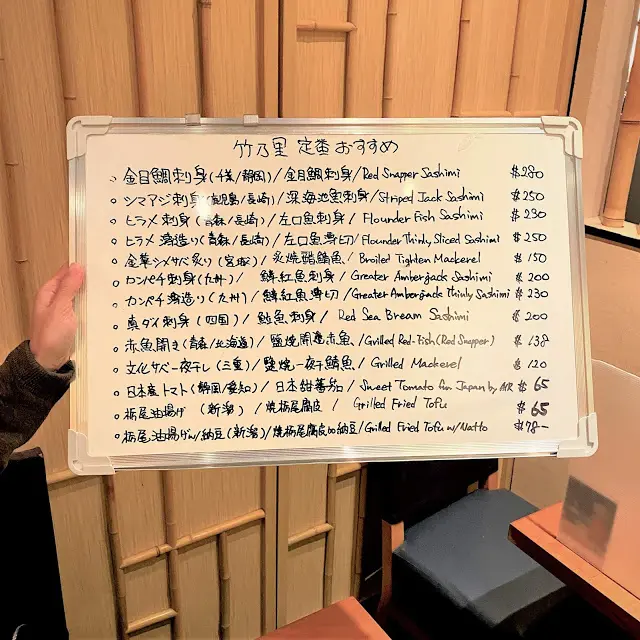 竹乃里 定番おすすめ
金目鯛刺身(千葉/静岡)/金目鯛刺身/Red Snapper Sashimi $280
シマアジ刺身(鹿児島/長崎)/深海池魚刺身/Striped Jack Sashimi $250
ヒラメ刺身(青森/長崎)/左口魚刺身/Flounder Fish Sashimi $230
ヒラメ薄造り(青森/長崎)/左口魚薄切/Flounder Thinly Sliced Sashimi $250
金華シメサバ炙り(宮城)/炙焼醋鯖魚/Broiled Tighten Mackerel $150
カンパチ刺身(九州)/鰤魚刺身/Greater Amberjack Sashimi $200
カンパチ薄造り(九州)/薄切/Greater Amberjack Thinly Sashimi $230
真ダイ刺身(四国)/鯛刺身/Red Sea Bream Sashimi $200
赤魚開き(青森/北海道)/鹽焼開邊赤魚/Grilled Red-Fish(Red Snapper) $138
文化サバ一夜干し(三重)/鹽焼一夜干鯖魚/Grilled Mackerel $120
日本産トマト(静岡/愛知)/日本甜蕃茄/Sweet Tomato from Japan by AIR $65
栃尾油揚げ(新潟)/焼栃尾腐皮/Grilled Fried Tofu $65
栃尾油揚げw/納豆(新潟)/焼栃尾腐皮加納豆/Grilled Fried Tofu w/Natto $78-